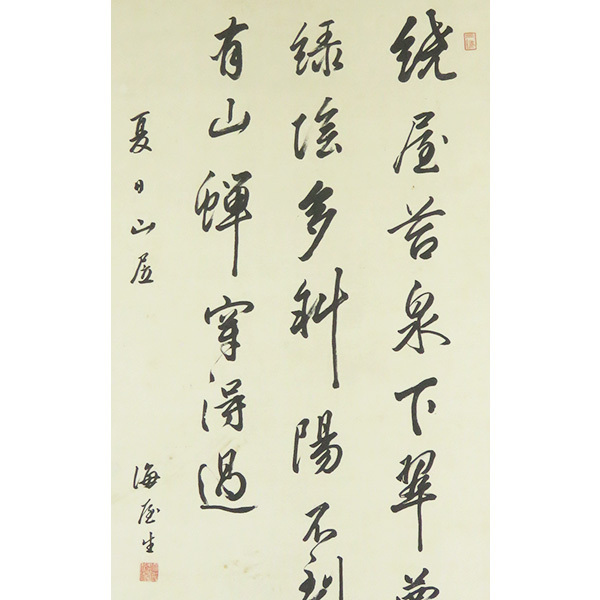 繞屋苔泉下翠
綠陰多斜陽不到
有山蟬穿得過
夏日山居
海屋生